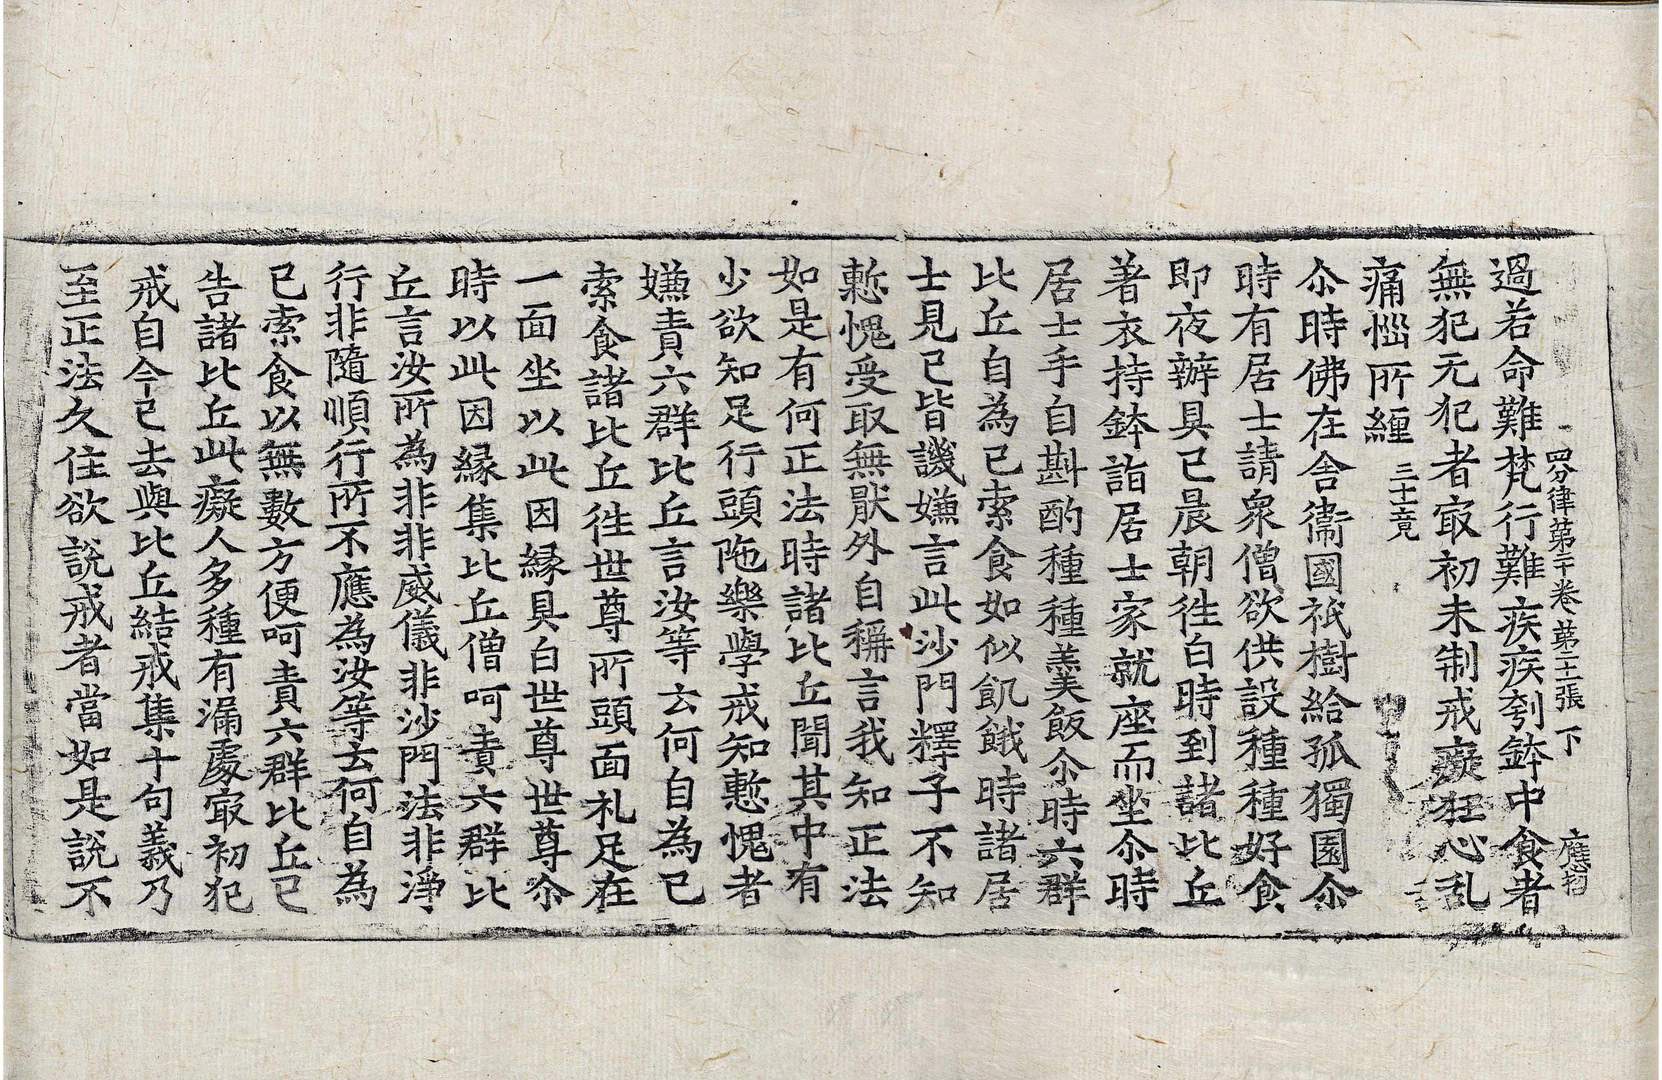 四分律第二十卷 第二十一張 下 應初
過若命難梵行難疾疾刳鉢中食者
無犯无犯者㝡初未制戒癡狂心乱
痛惱所纏 三十竟
尒時佛在舍衛國祇樹給孤獨園尒
時有居士請衆僧欲供設種種好食
即夜辦具已晨朝徃白時到諸比丘
著衣持鉢詣居士家就座而坐尒時
居士手自斟酌種種羹飯尒時六群
比丘自為已索食如似飢餓時諸居
士見已皆譏嫌言此沙門釋子不知
慙愧受取無猒外自稱言我知正法
如是有何正法時諸比丘聞其中有
少欲知足行頭陁樂學戒知慙愧者
嫌責六群比丘言汝等云何自為已
索食諸比丘徃世尊所頭面礼足在
一面坐以此因緣具白世尊世尊尒
時以此因緣集比丘僧呵責六群比
丘言汝所為非非威儀非沙門法非淨
行非隨順行所不應為汝等云何自為
已索食以無數方便呵責六群比丘已
告諸比丘此癡人多種有漏處㝡初犯
戒自今已去與比丘結戒集十句義乃
至正法久住欲說戒者當如是說不